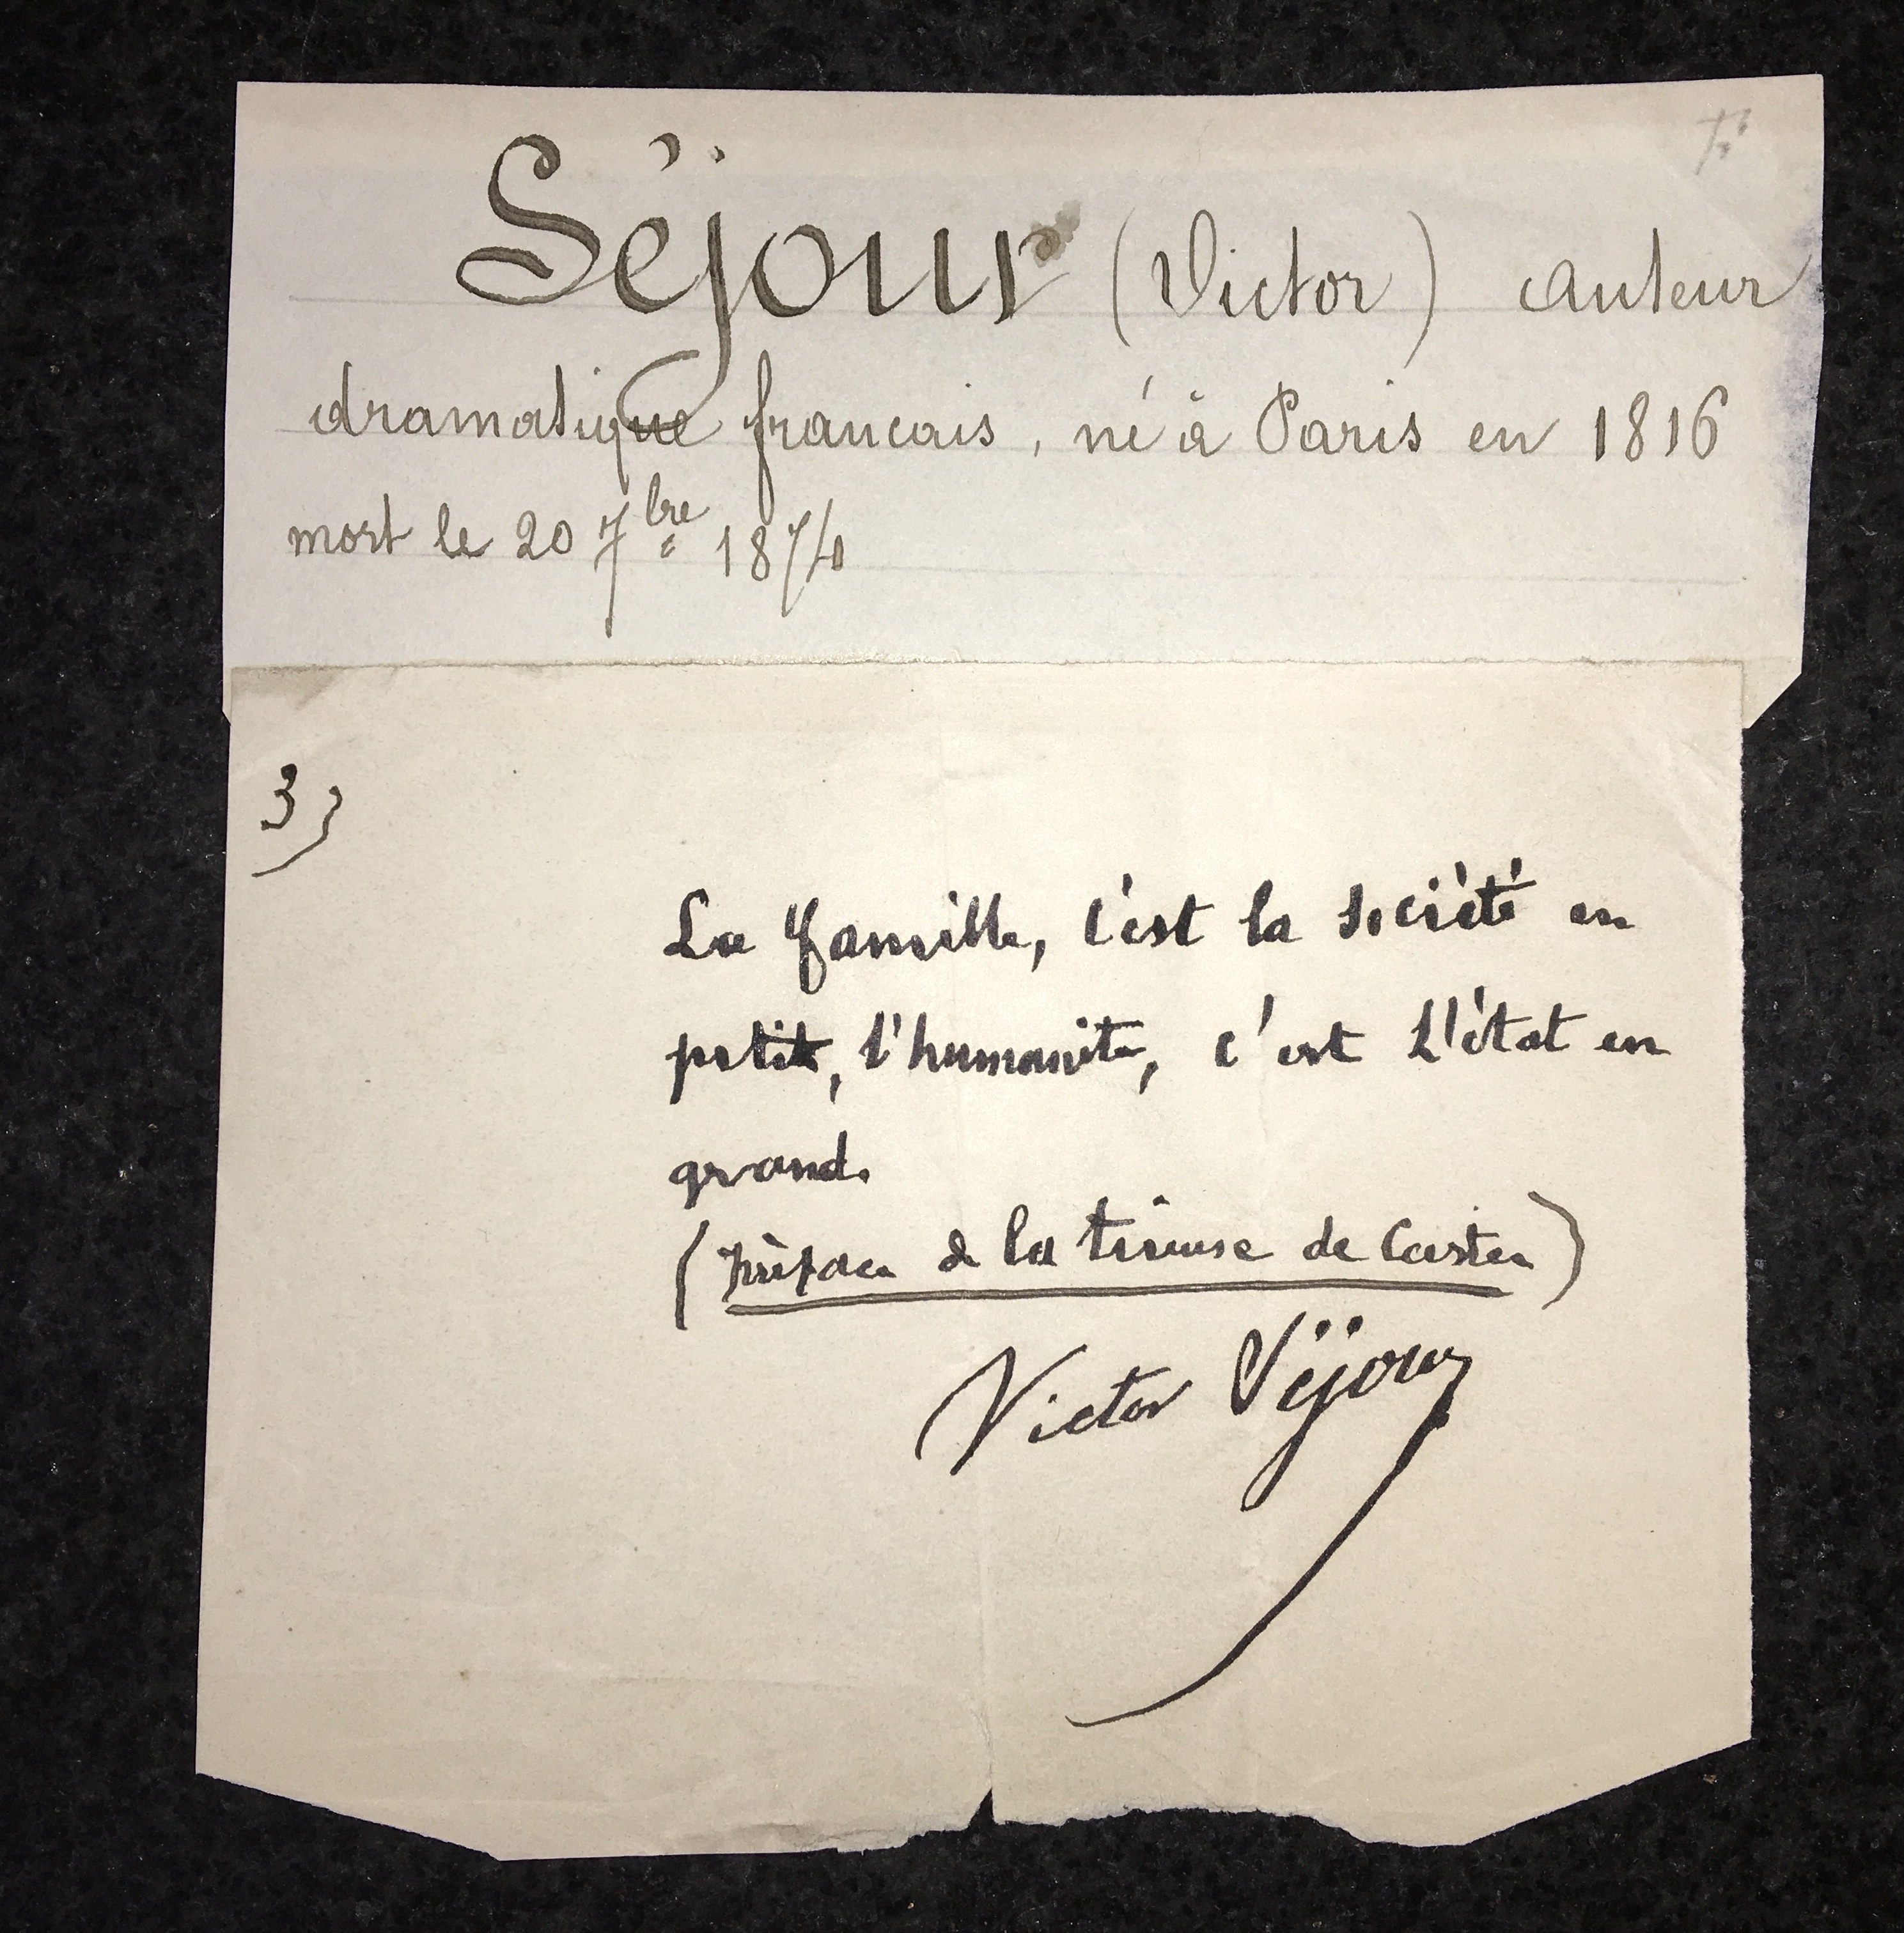 Séjour (Victor) auteur
dramatique francais, né à Paris en 1816
mort le 20 7bre 1874
3)
La famille, c'est la société en
petit, l'humanité, c'est L'état en
grand.
(préface de la tireuse de Cartes)
Victor Séjour